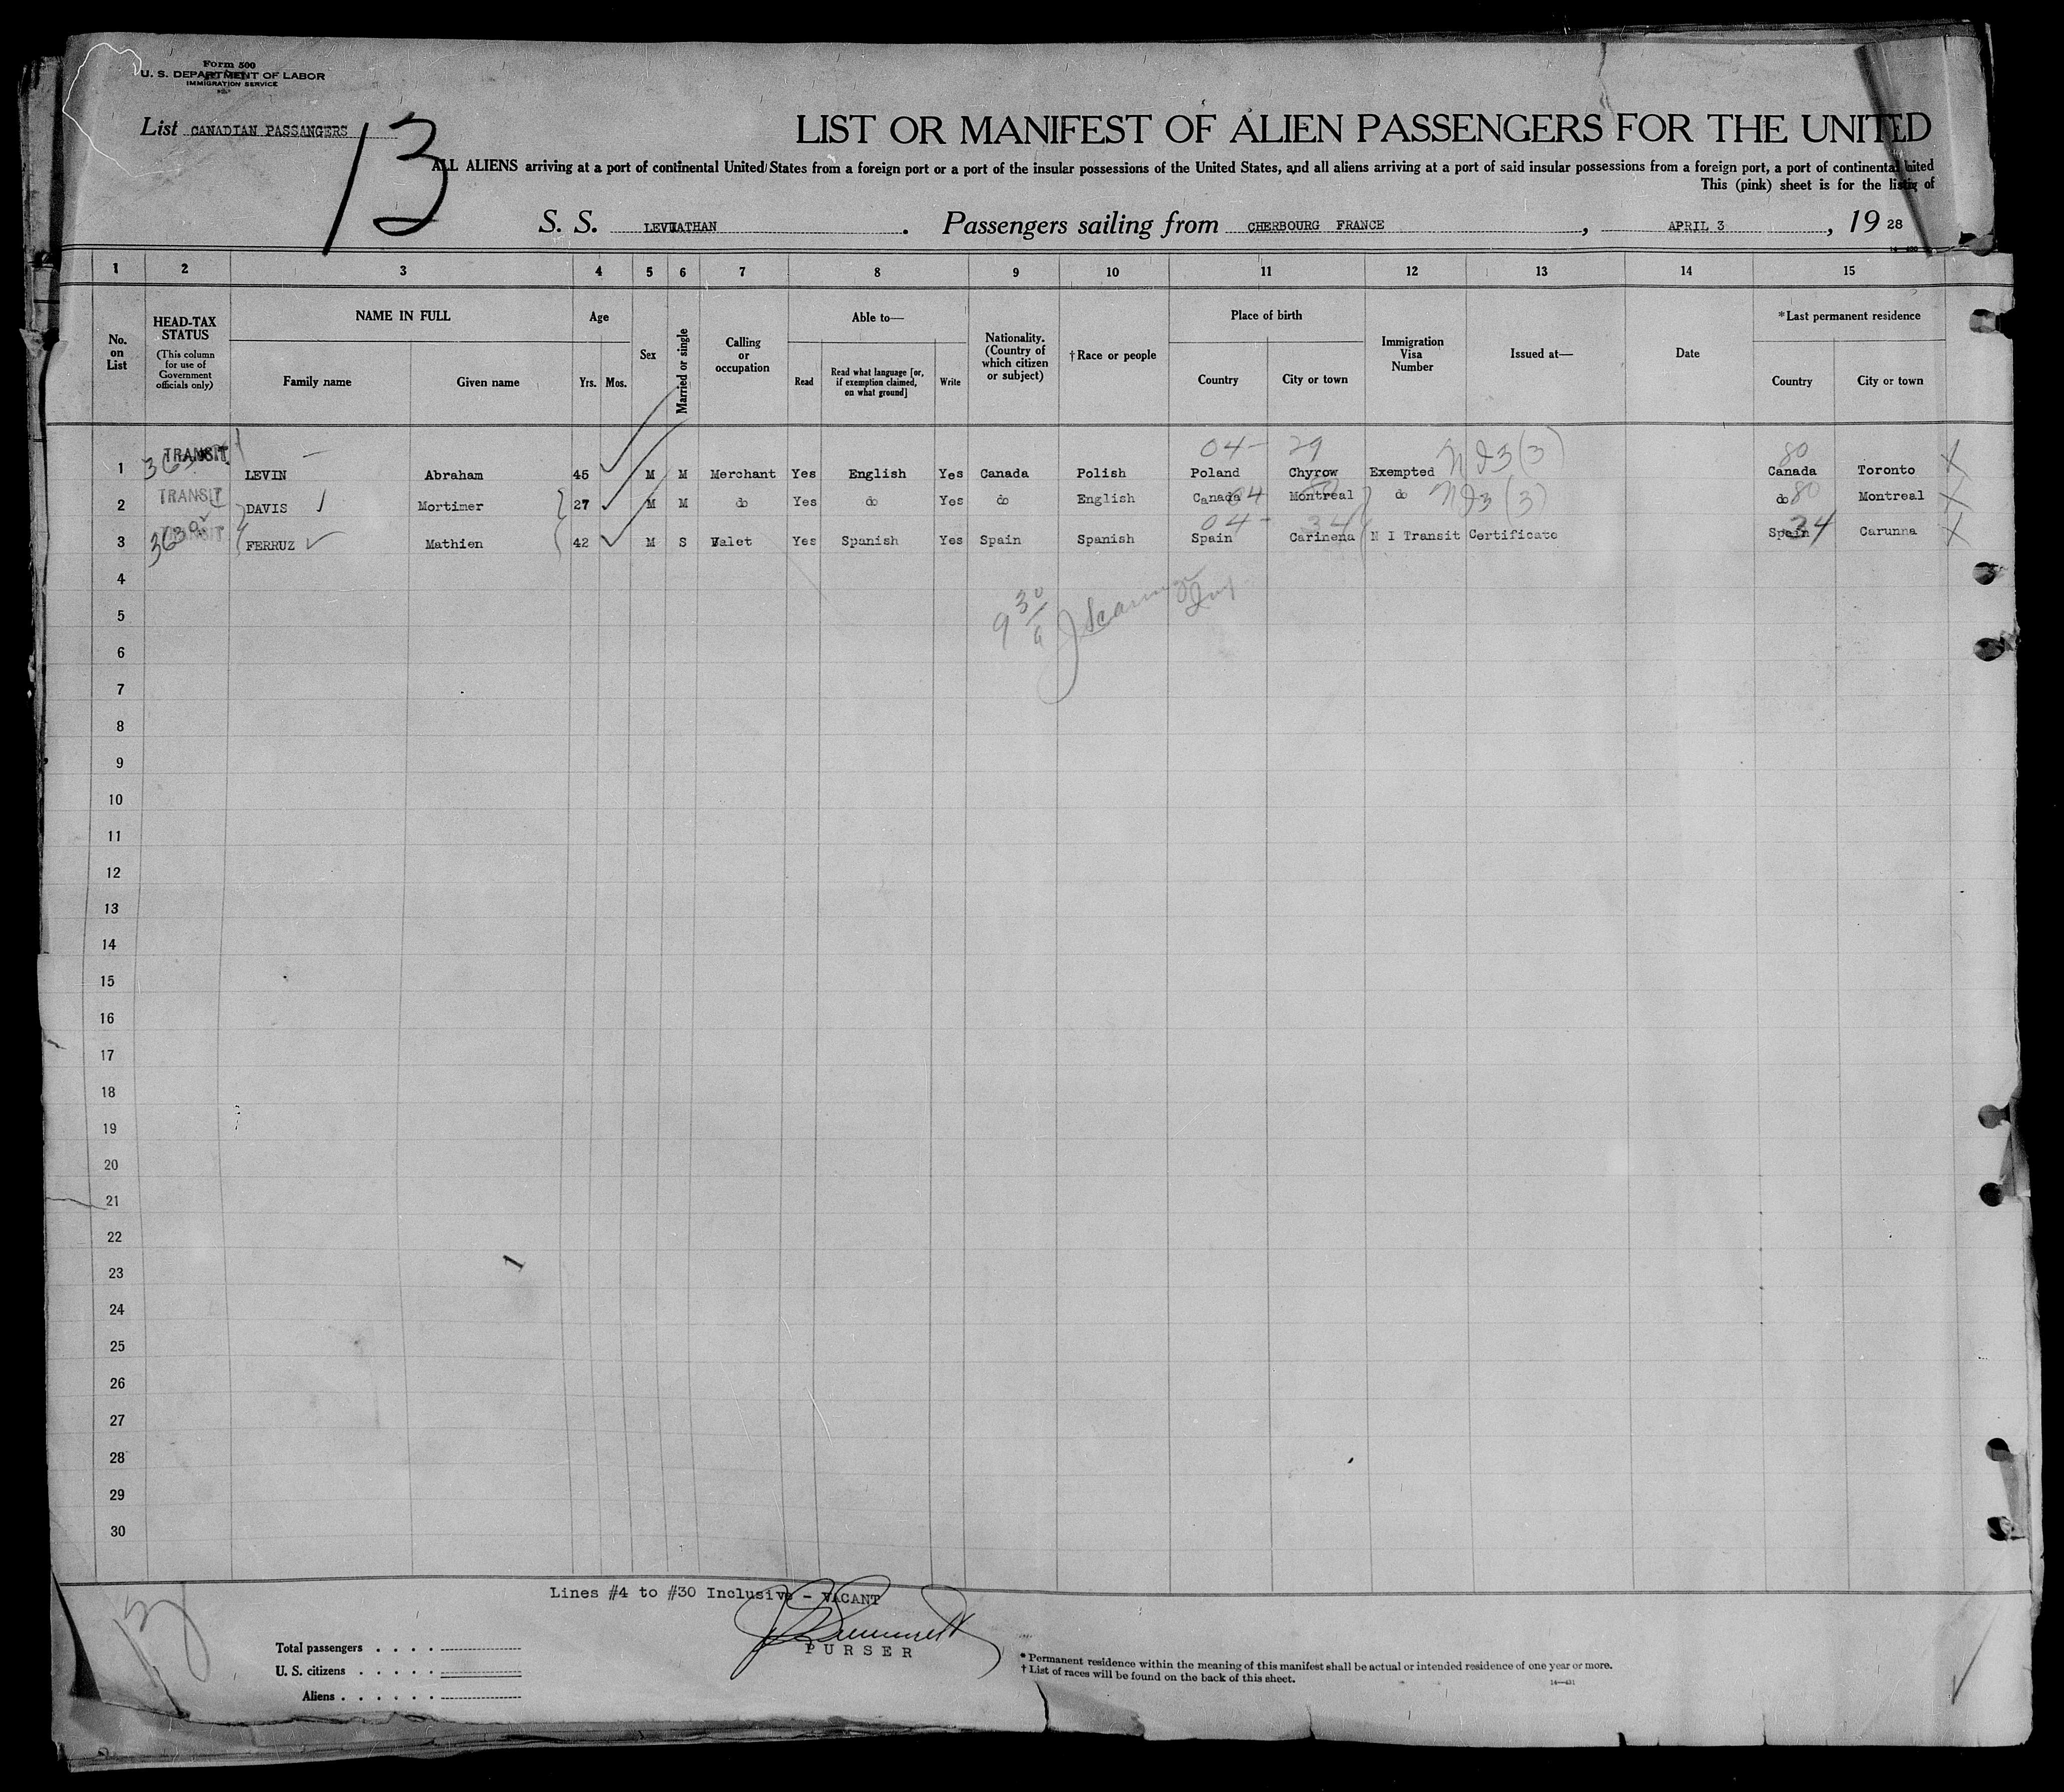 Form 500
U. S. DEPARTMENT OF LABOR
IMMIGRATION SERVICE
List CANADIAN PASSANGERS
13
LIST OR MANIFEST OF ALIEN PASSENGERS FOR THE UNITED
ALL ALIENS arriving at a port of continental United States from a foreign port or a port of the insular possessions of the United States, and all aliens arriving at a port of said insular possessions from a foreign port, a port of continental United
This (pink) sheet is for the listing of
S. S. LEVIATHAN . Passengers sailing from CHERBOURG FRANCE , APRIL 3 , 19 28
1 2 3 4 5 6 7 8 9 10 11 12 13 14 15
No. on List
HEAD-TAX STATUS
(This column for use of Government officials only)
NAME IN FULL
Family name Given name
Age
Yrs. Mos.
Sex
Married or single
Calling or occupation
Able to—
Read
Read what language [or, if exemption claimed, on what ground]
Write
Nationality. (Country of which citizen or subject)
†Race or people
Place of birth
Country City or town
Immigration Visa Number
Issued at—
Date
*Last permanent residence
Country City or town
04- 29 80
1 TRANSIT LEVIN Abraham 45 M M Merchant Yes English Yes Canada Polish Poland Chyrow Exempted NI3(3) Canada Toronto X
2 TRANSIT DAVIS Mortimer 27 M M do Yes do Yes do English Canada 04 Montreal do NI3(3) do 80 Montreal X
04- 34
3 TRANSIT FERRUZ Mathien 42 M S Valet Yes Spanish Yes Spain Spanish Spain Carinena N I Transit Certificate Spain 34 Carunna X
4
5
9 30
6
7
8
9
10
11
12
13
14
15
16
17
18
19
20
21
22
23
24
25
26
27
28
29
30
Lines #4 to #30 Inclusive - VACANT
PURSER
13
Total passengers . . . .
U. S. citizens . . . . .
Aliens . . . . . .
* Permanent residence within the meaning of this manifest shall be actual or intended residence of one year or more.
† List of races will be found on the back of this sheet.
14—431